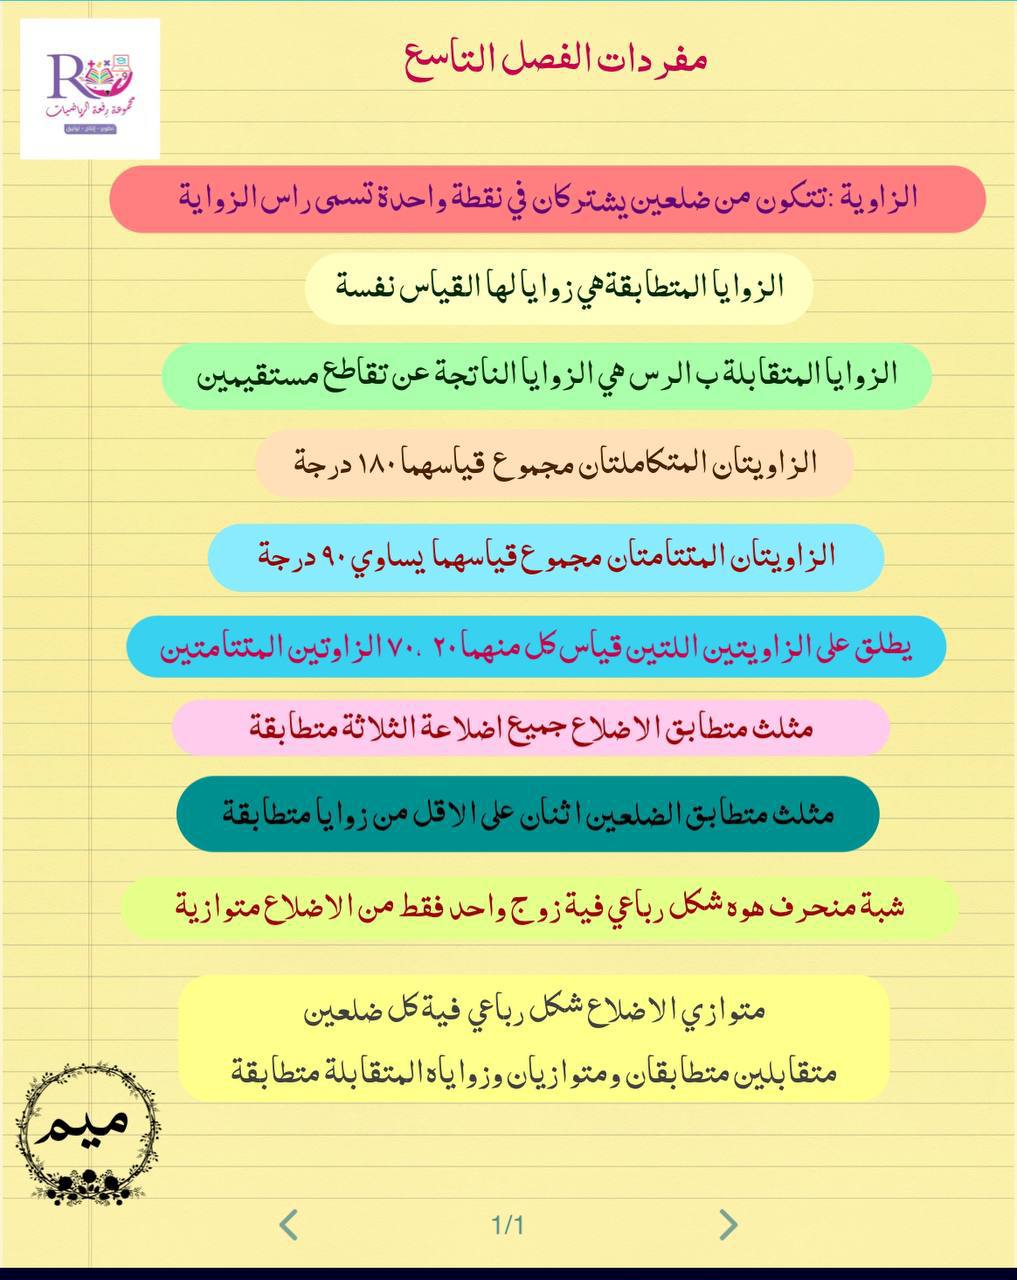 مفردات الفصل التاسع
R
مجموعة رفعة الرياضيات
تطوير - إنتاج - توثيق
الزاوية :تتكون من ضلعين يشتركان في نقطة واحدة تسمى راس الزواية
الزوايا المتطابقة هي زوايا لها القياس نفسة
الزوايا المتقابلة ب الرس هي الزوايا الناتجة عن تقاطع مستقيمين
الزاويتان المتكاملتان مجموع قياسهما ١٨٠ درجة
الزاويتان المتتامتان مجموع قياسهما يساوي ٩٠ درجة
يطلق على الزاويتين اللتين قياس كل منهما ٢٠ ،٧٠ الزاوتين المتتامتين
مثلث متطابق الاضلاع جميع اضلاعة الثلاثة متطابقة
مثلث متطابق الضلعين اثنان على الاقل من زوايا متطابقة
شبة منحرف هوه شكل رباعي فية زوج واحد فقط من الاضلاع متوازية
متوازي الاضلاع شكل رباعي فية كل ضلعين
متقابلين متطابقان ومتوازيان وزواياه المتقابلة متطابقة
ميم
1/1